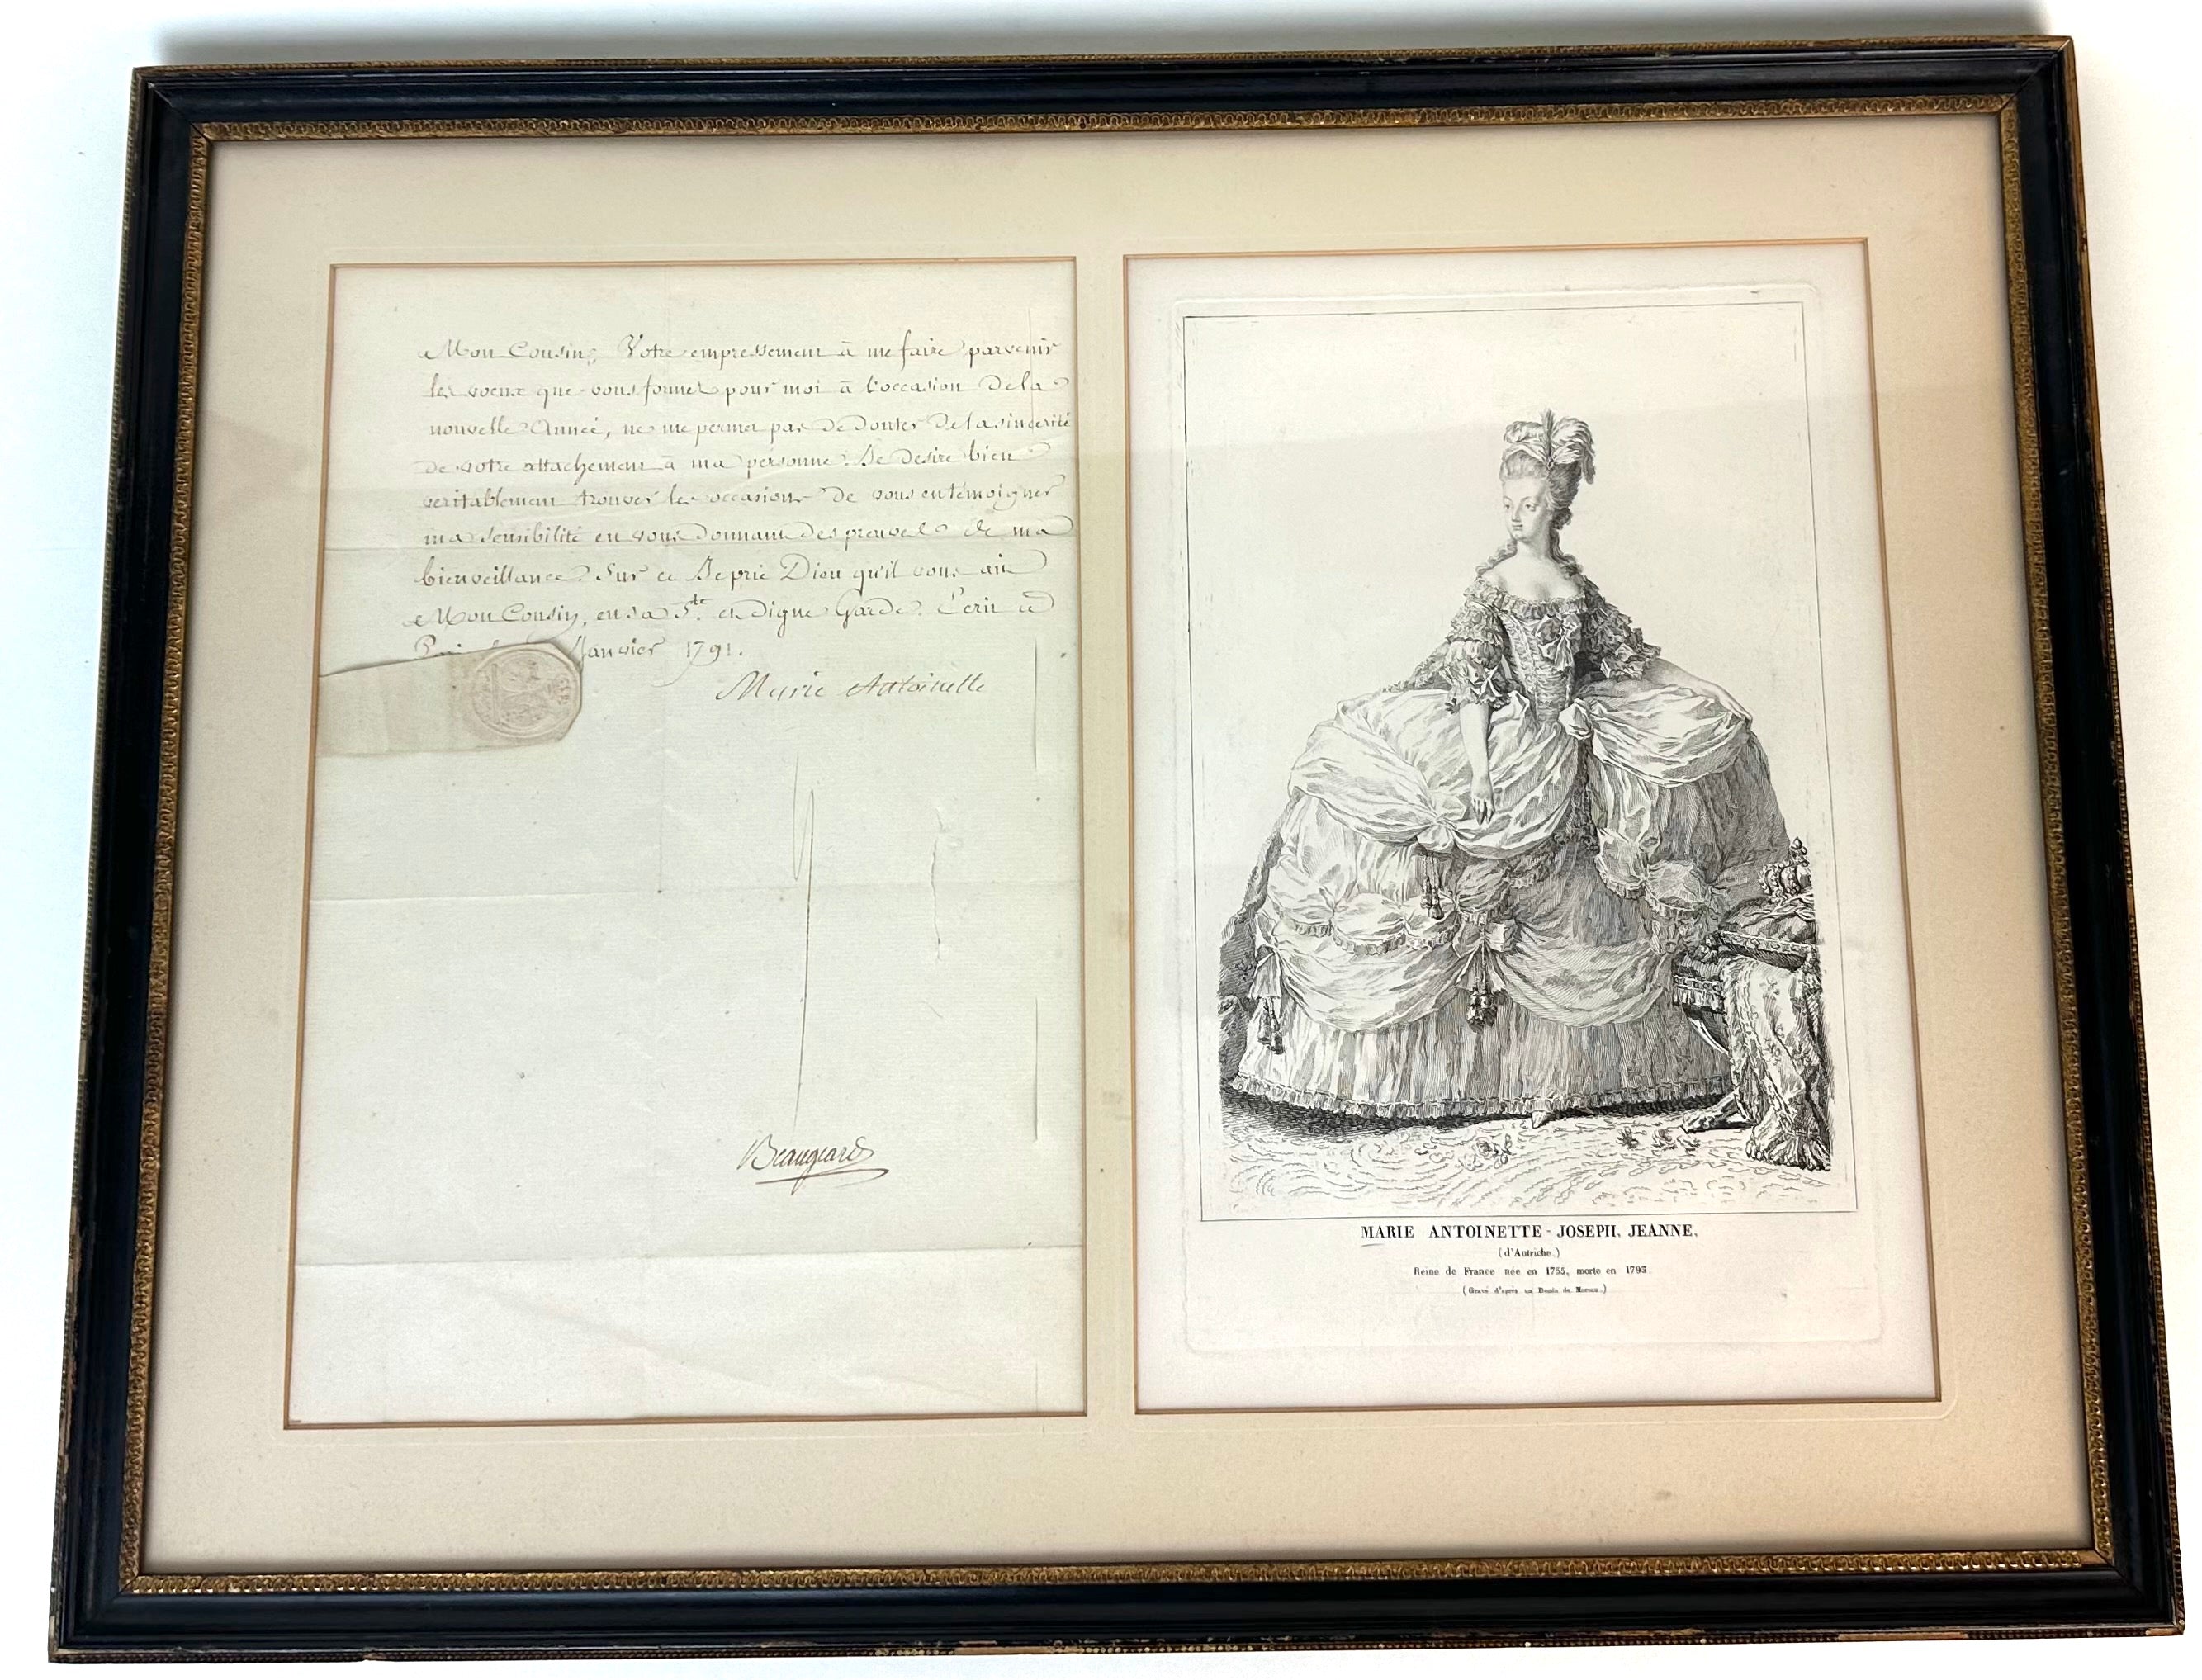 Mon Cousin, Votre empressement à me faire parvenir
les voeux que vous formez pour moi à l'occasion de la
nouvelle Année, ne me permet pas de douter de la sincerité
de votre attachement à ma personne. Je desire bien
veritablement trouver les occasions de vous en témoigner
ma sensibilité en vous donnant des preuves de ma
bienveillance. Sur ce Je prie Dieu qu'il vous ait
Mon Cousin, en sa Ste. et digne Garde. Ecrit à
Janvier 1791.
Marie Antoinette
Beaugeard
MARIE ANTOINETTE - JOSEPH, JEANNE,
(d'Autriche.)
Reine de France née en 1755, morte en 1793.
(Gravé d'après un Dessin de Moreau.)